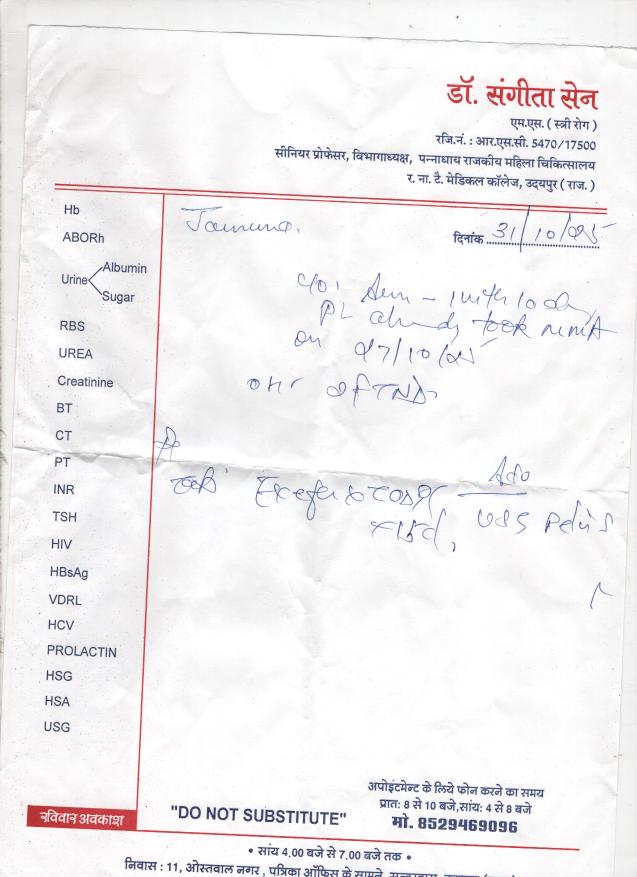 डॉ. संगीता सेन
एम.एस. ( स्त्री रोग )
रजि.नं. : आर.एस.सी. 5470/17500
सीनियर प्रोफेसर, विभागाध्यक्ष, पन्नाधाय राजकीय महिला चिकित्सालय
र. ना. टै. मेडिकल कॉलेज, उदयपुर ( राज. )
दिनांक 31/10/25
Hb
ABORh
Urine Albumin
Sugar
RBS
UREA
Creatinine
BT
CT
PT
INR
TSH
HIV
HBsAg
VDRL
HCV
PROLACTIN
HSG
HSA
USG
C/o
already took
on 27/10/25
Adv
Tab
USG Pelvis
रविवार अवकाश
"DO NOT SUBSTITUTE"
अपोइंटमेन्ट के लिये फोन करने का समय
प्रात: 8 से 10 बजे,सांय: 4 से 8 बजे
मो. 8529469096
• सांय 4.00 बजे से 7.00 बजे तक •
निवास : 11, ओस्तवाल नगर , पत्रिका ऑफिस के सामने,